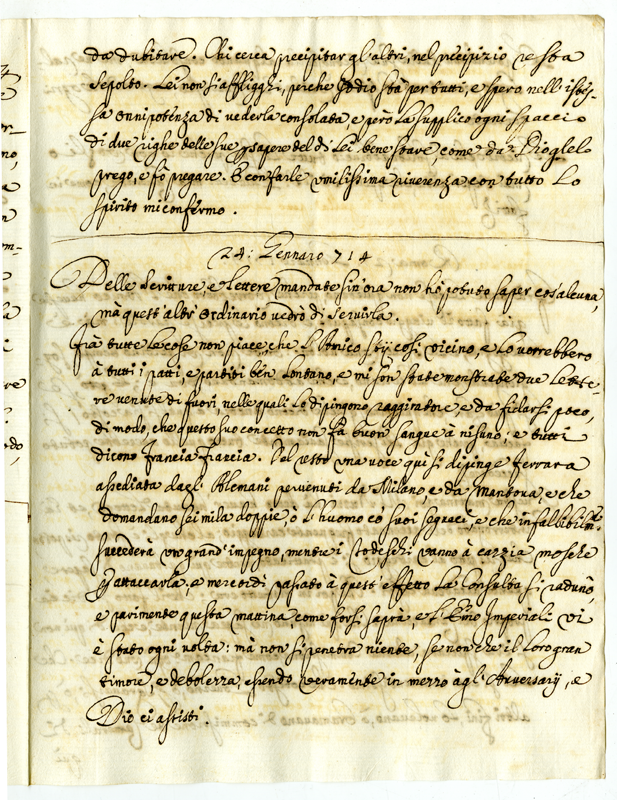 da dubitare. Chi cerca precipitar gl'altri, nel precipizio resta
sepolto. Lei non si affligghi, perche Iddio stà per tutti, e spero nell'istes-
sa onnipotenza di vederla consolata, e però la supplico ogni spaccio
di due righe delle sue p sapere del di Lei bene stare, come da Dio glielo
prego, e fò pregare. E con farle umilissima riverenza con tutto lo
spirito mi confermo.
24: Gennaro 714
Delle scritture e lettere mandate sin'ora non hò potuto saper cosa alcuna,
mà quest'altr'ordinario vedrò di servirla.
Frà tutte le cose non piace, che l'Amico stij così vicino, e lo vorrebbero
à tutti i patti, e partiti ben lontano, e mi son state monstrate due lette-
re venute di fuori, nelle quali lo dipingono raggiratore, e da fidarsi poco,
di modo, che questo suo concetto non fà buon sangue à nisuno; e tutti
dicono Francia Francia. Nel resto una voce quì si dipinge Ferrara
assediata dagl'Alemani pervenuti da Milano, e da Mantova, e che
domandano sei mila doppie, ò l'huomo co' suoi seguaci, e che infallibilm.te
succederà un grand'impegno, mentre i Todeschi vanno à caccia mosche
p attaccarla, e mercordì passato à quest'effetto la Consulta si radunò,
e parimente questa mattina, come forsi saprà, e l'Em̃o Imperiali vi
è stato ogni volta: mà non si penetra niente, se non che il loro gran
timore, e debolezza, essendo veramente in mezzo àgl'Avversarij, e
Dio ci assisti.